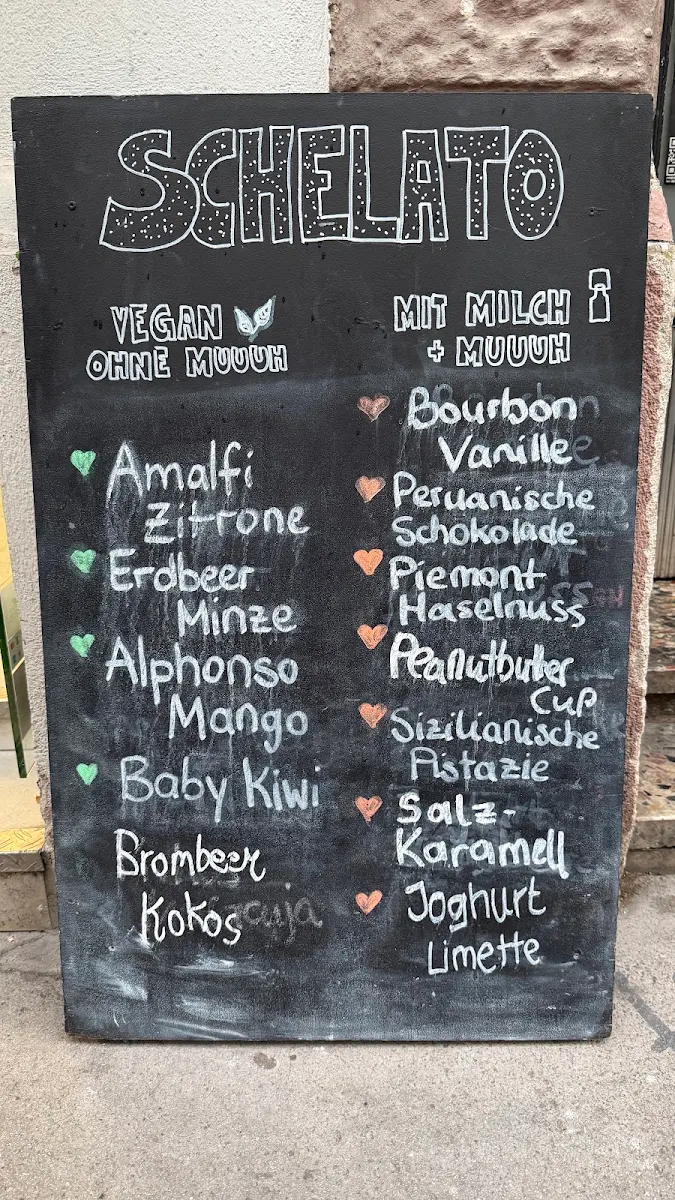 SCHELATO
VEGAN
OHNE MUUUH
Amalfi
Zitrone
Erdbeer
Minze
Alphonso
Mango
Baby Kiwi
Brombeer
Kokos
MIT MILCH
+ MUUUH
Bourbon
Vanille
Peruanische
Schokolade
Piemont
Haselnuss
Peanutbutter
Cup
Sizilianische
Pistazie
Salz-
Karamell
Joghurt
Limette